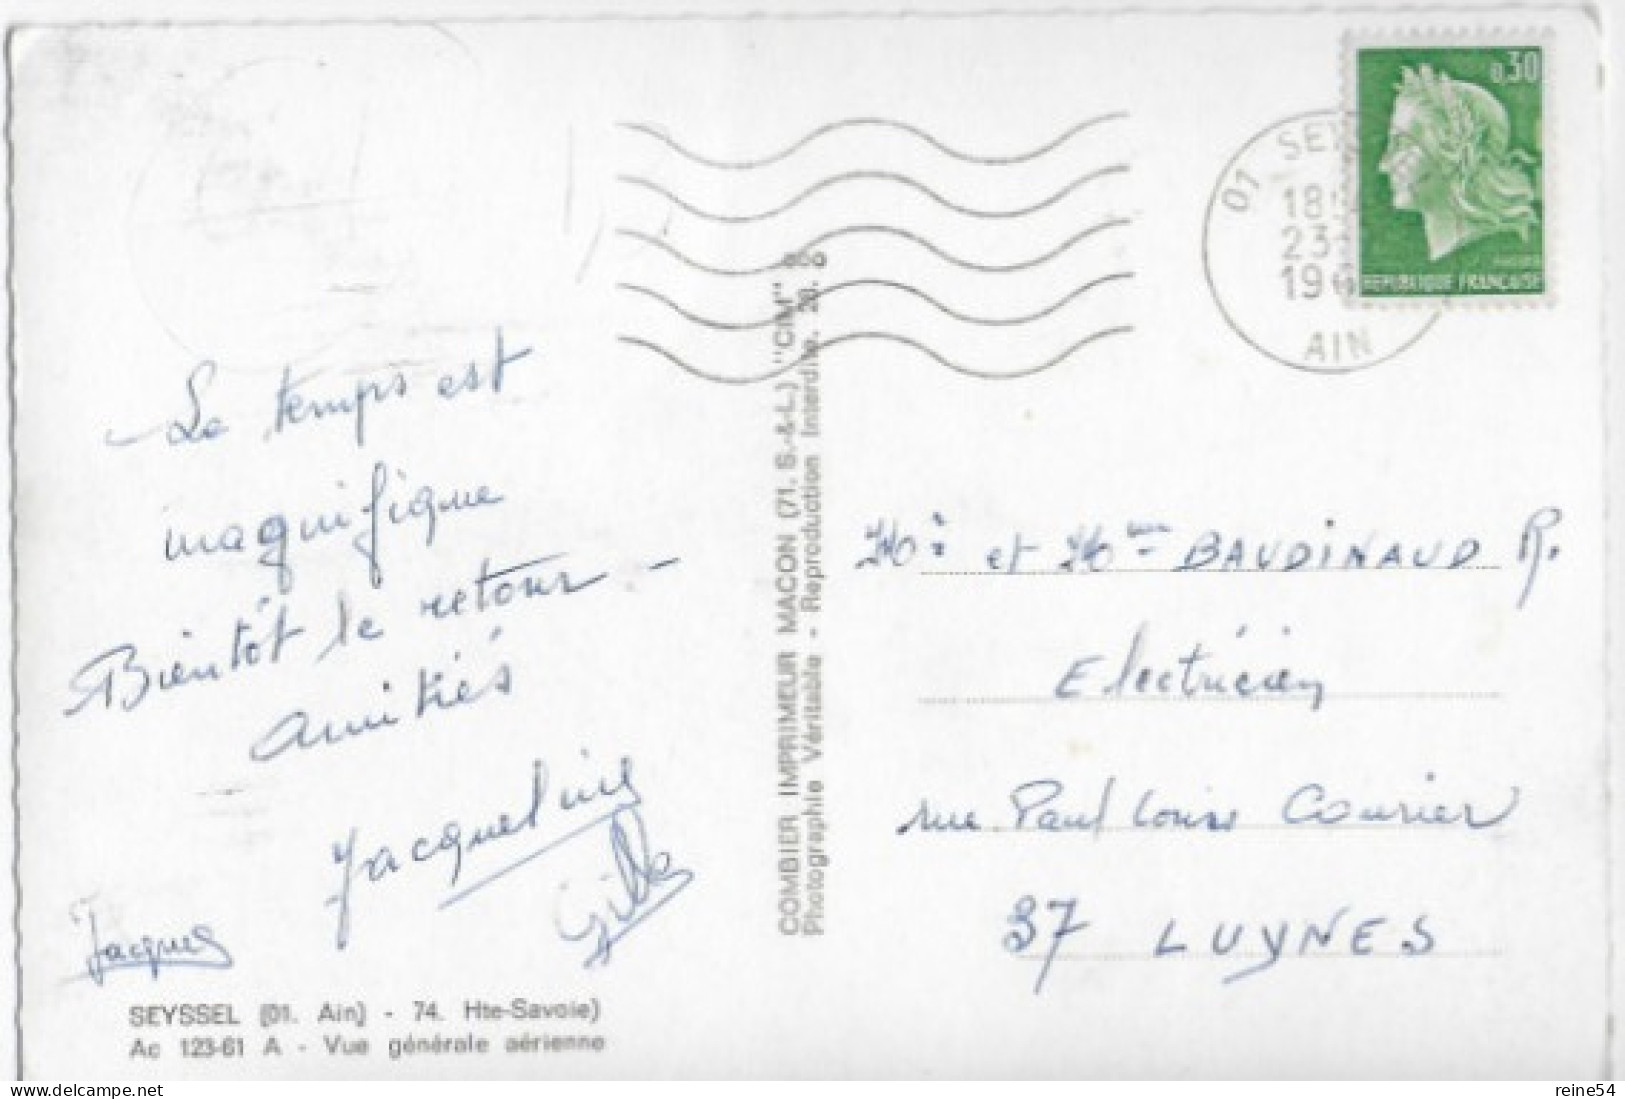 0,30
REPUBLIQUE FRANÇAISE
01 SEY
18
23
19
AIN
Le temps est
magnifique
Bientôt le retour -
amitiés
Jacqueline
Gilles
Jacques
SEYSSEL (01. Ain) - 74. Hte-Savoie)
Ac 123-61 A - Vue générale aérienne
COMBIER IMPRIMEUR MACON (71. S.-&-L.) "CIM"
Photographie Véritable - Reproduction Interdite.
Mr et Mme BAUDINAUD R.
Electricien
rue Paul Louis Courier
37 LUYNES
reine54